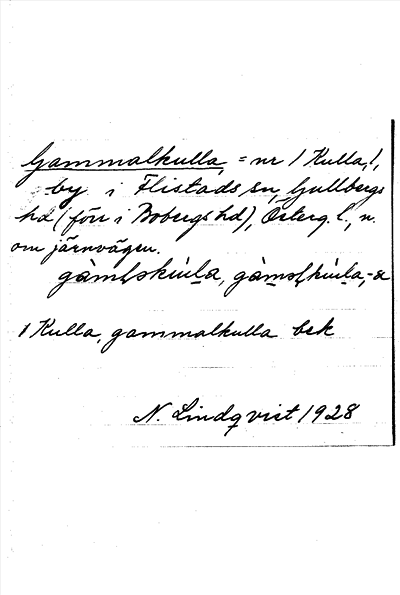 Gammalkulla, = nr 1 Kulla, !,
by i Flistads sn, Gullbergs
hd (förr i Bobergs hd), Österg. l., n.
om järnvägen.
1 Kulla, gammalkulla bek
N. Lindqvist 1928